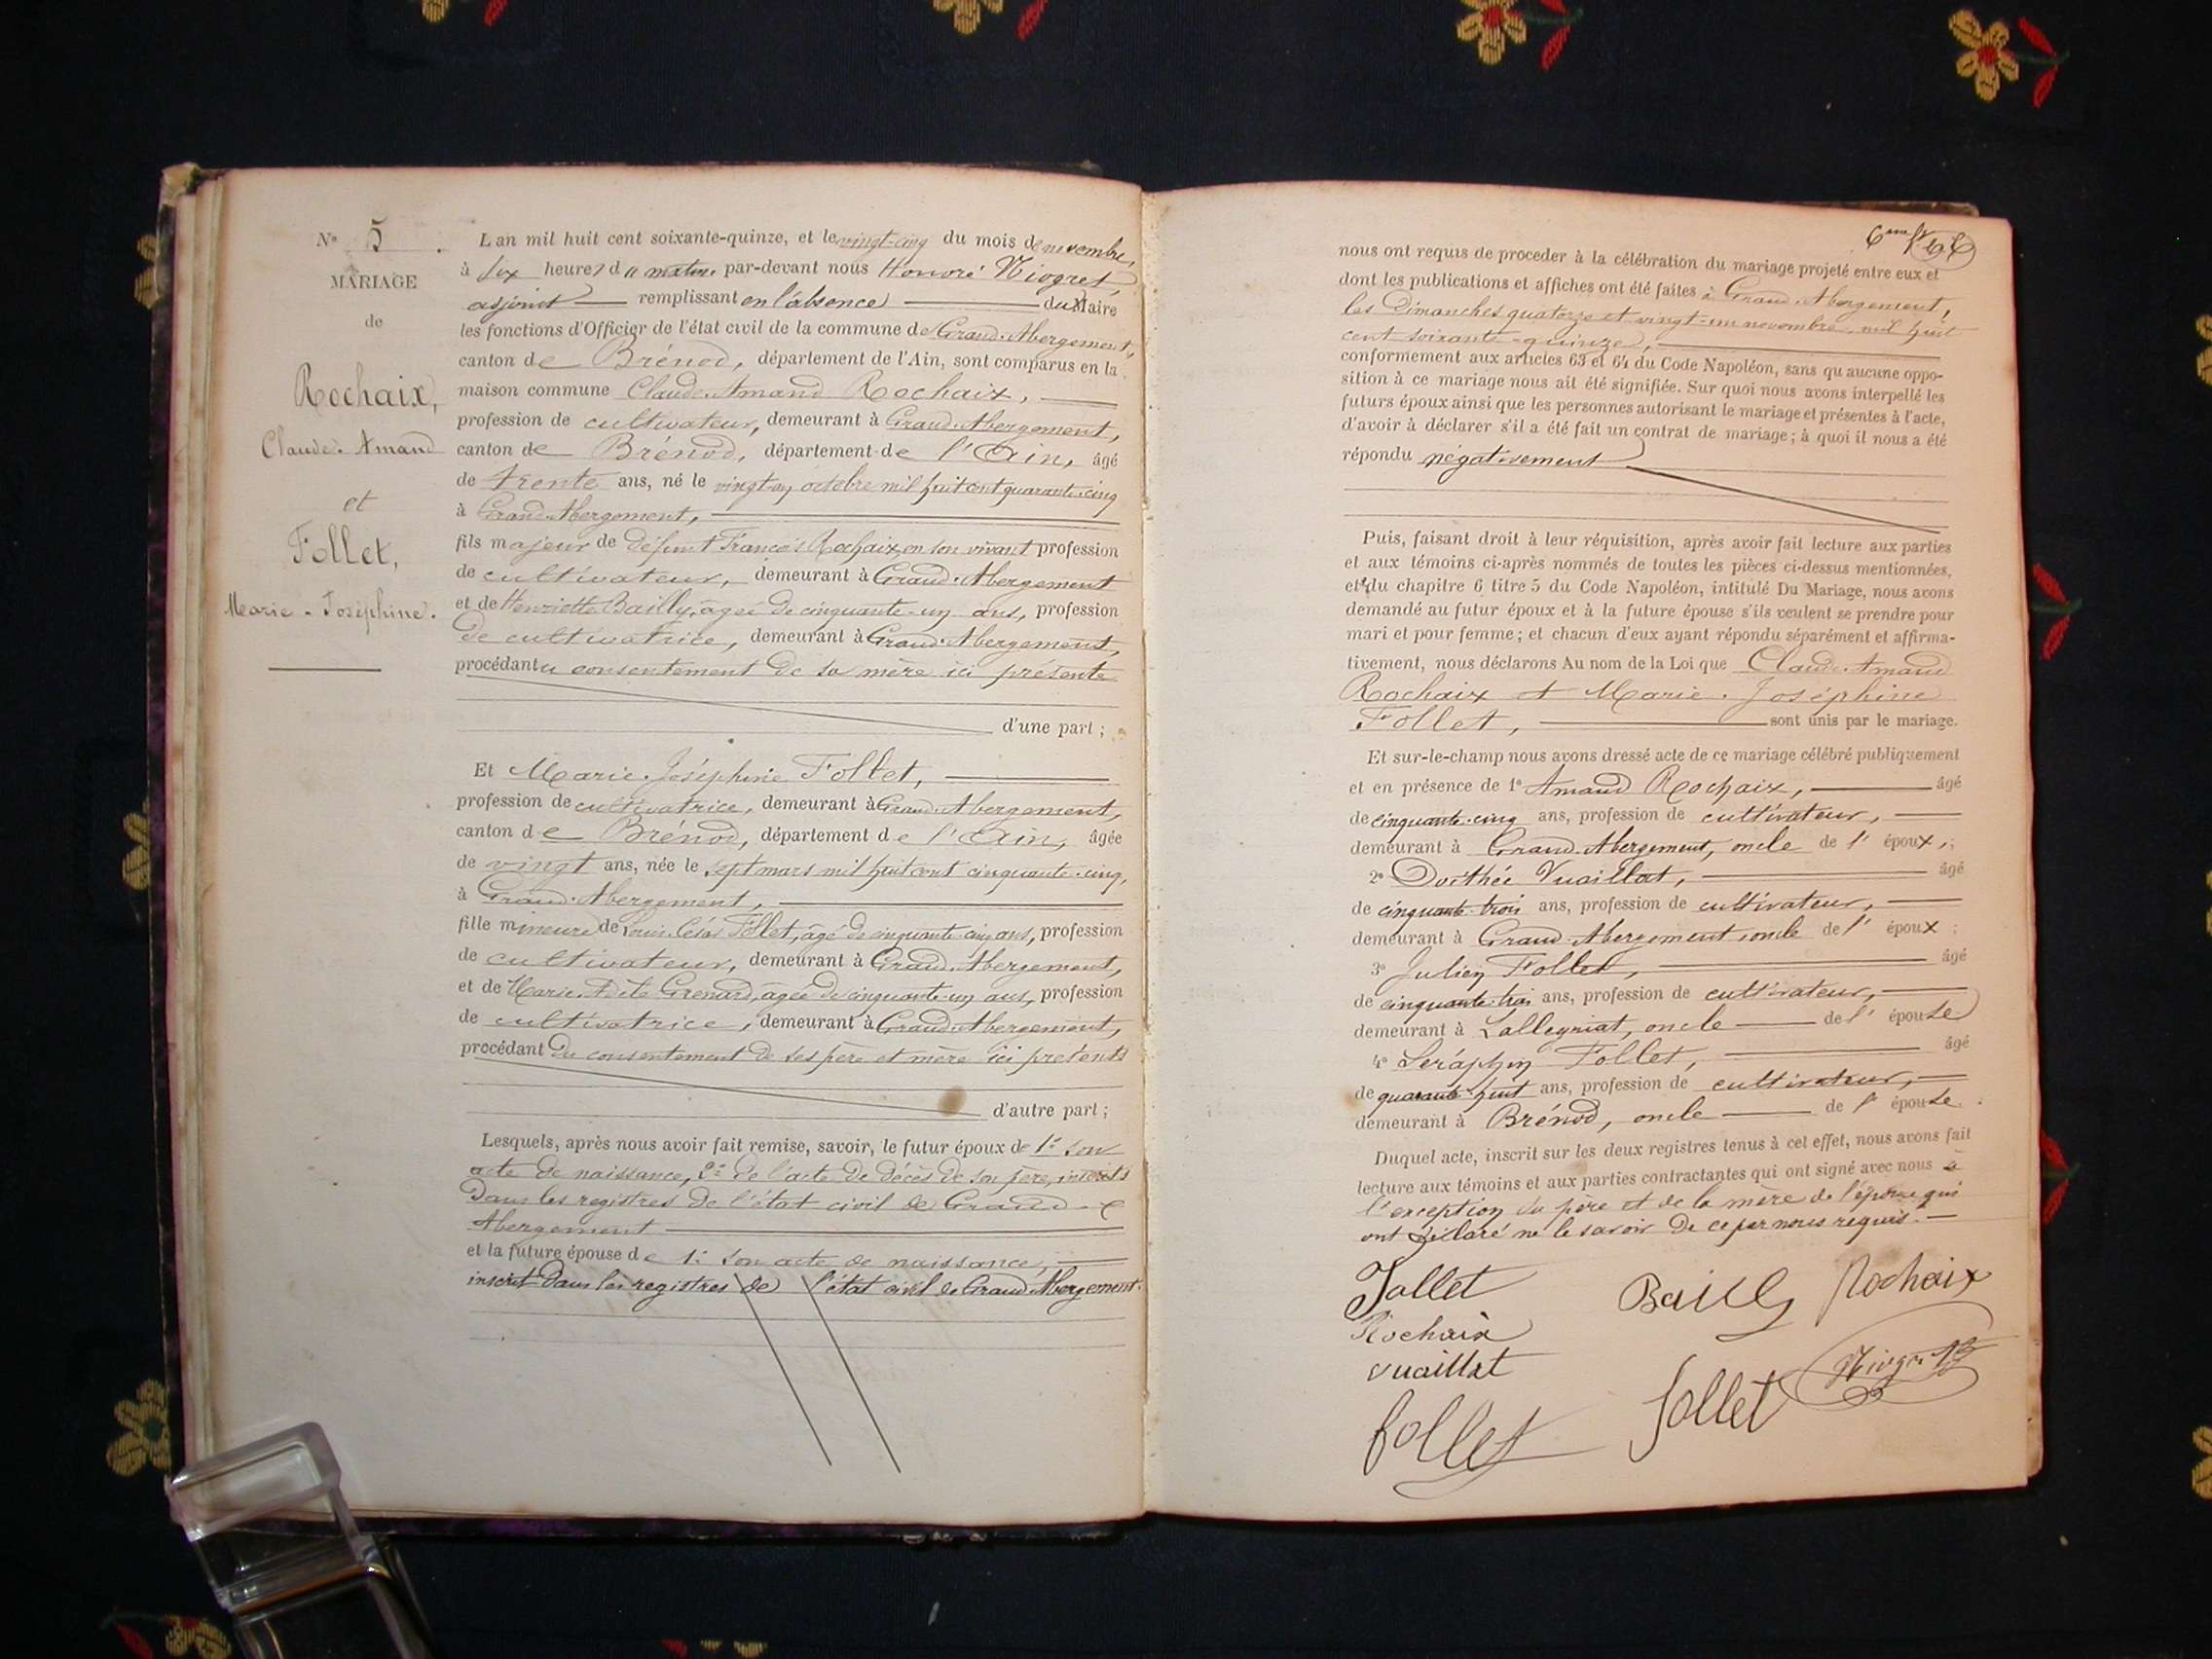 N° 5.
MARIAGE
de
Rochaix,
Claude-Amand
et
Follet,
Marie-Joséphine.
L'an mil huit cent soixante-quinze, et le vingt-cinq du mois de novembre,
à six heures du matin par-devant nous Honoré Niogret,
adjoint remplissant en l'absence du Maire
les fonctions d'Officier de l'état civil de la commune de Grand-Abergement,
canton de Brénod, département de l'Ain, sont comparus en la
maison commune Claude-Amand Rochaix,
profession de cultivateur, demeurant à Grand-Abergement,
canton de Brénod, département de l'Ain, âgé
de trente ans, né le octobre mil huit cent quarante-cinq
à Grand-Abergement,
fils majeur de défunt François Rochaix, en son vivant profession
de cultivateur, demeurant à Grand-Abergement
et de Henriette Bailly, âgée de cinquante-un ans, profession
de cultivatrice, demeurant à Grand-Abergement,
procédant du consentement de sa mère ici présente
d'une part;
Et Marie-Joséphine Follet,
profession de cultivatrice, demeurant à Grand-Abergement,
canton de Brénod, département de l'Ain, âgée
de vingt ans, née le sept mars mil huit cent cinquante-cinq,
à Grand-Abergement,
fille mineure de Louis-César Follet, âgé de cinquante-cinq ans, profession
de cultivateur, demeurant à Grand-Abergement,
et de Marie-Adèle Grenard, âgée de cinquante-un ans, profession
de cultivatrice, demeurant à Grand-Abergement,
procédant du consentement de ses père et mère ici présents
d'autre part;
Lesquels, après nous avoir fait remise, savoir, le futur époux de 1° son
acte de naissance, 2° de l'acte de décès de son père, inscrits
dans les registres de l'état civil de Grand-
Abergement
et la future épouse de 1° son acte de naissance,
inscrit dans les registres de l'état civil de Grand-Abergement.
nous ont requis de procéder à la célébration du mariage projeté entre eux et
dont les publications et affiches ont été faites à Grand-Abergement,
les Dimanches quatorze et vingt-un novembre mil huit
cent soixante-quinze,
conformement aux articles 63 et 64 du Code Napoléon, sans qu'aucune oppo-
sition à ce mariage nous ait été signifiée. Sur quoi nous avons interpellé les
futurs époux ainsi que les personnes autorisant le mariage et présentes à l'acte,
d'avoir à déclarer s'il a été fait un contrat de mariage; à quoi il nous a été
répondu négativement
Puis, faisant droit à leur réquisition, après avoir fait lecture aux parties
et aux témoins ci-après nommés de toutes les pièces ci-dessus mentionnées,
et du chapitre 6 titre 5 du Code Napoléon, intitulé Du Mariage, nous avons
demandé au futur époux et à la future épouse s'ils veulent se prendre pour
mari et pour femme; et chacun d'eux ayant répondu séparément et affirma-
tivement, nous déclarons Au nom de la Loi que Claude-Amand
Rochaix et Marie-Joséphine
Follet, sont unis par le mariage.
Et sur-le-champ nous avons dressé acte de ce mariage célébré publiquement
et en présence de 1° Amand Rochaix, âgé
de cinquante-cinq ans, profession de cultivateur,
demeurant à Grand-Abergement, oncle de l'époux;
2° Dosithée Vuaillat, âgé
de cinquante-trois ans, profession de cultivateur,
demeurant à Grand-Abergement, oncle de l'époux;
3° Julien Follet, âgé
de cinquante-trois ans, profession de cultivateur,
demeurant à Lalleyriat, oncle de l'épouse
4° Séraphin Follet, âgé
de quarante-huit ans, profession de cultivateur,
demeurant à Brénod, oncle de l'épouse.
Duquel acte, inscrit sur les deux registres tenus à cet effet, nous avons fait
lecture aux témoins et aux parties contractantes qui ont signé avec nous à
l'exception du père et de la mère de l'épouse qui
ont déclaré ne le savoir de ce par nous requis.
Follet Bailly Rochaix
Rochaix
Vuaillat Niogret
Follet Follet